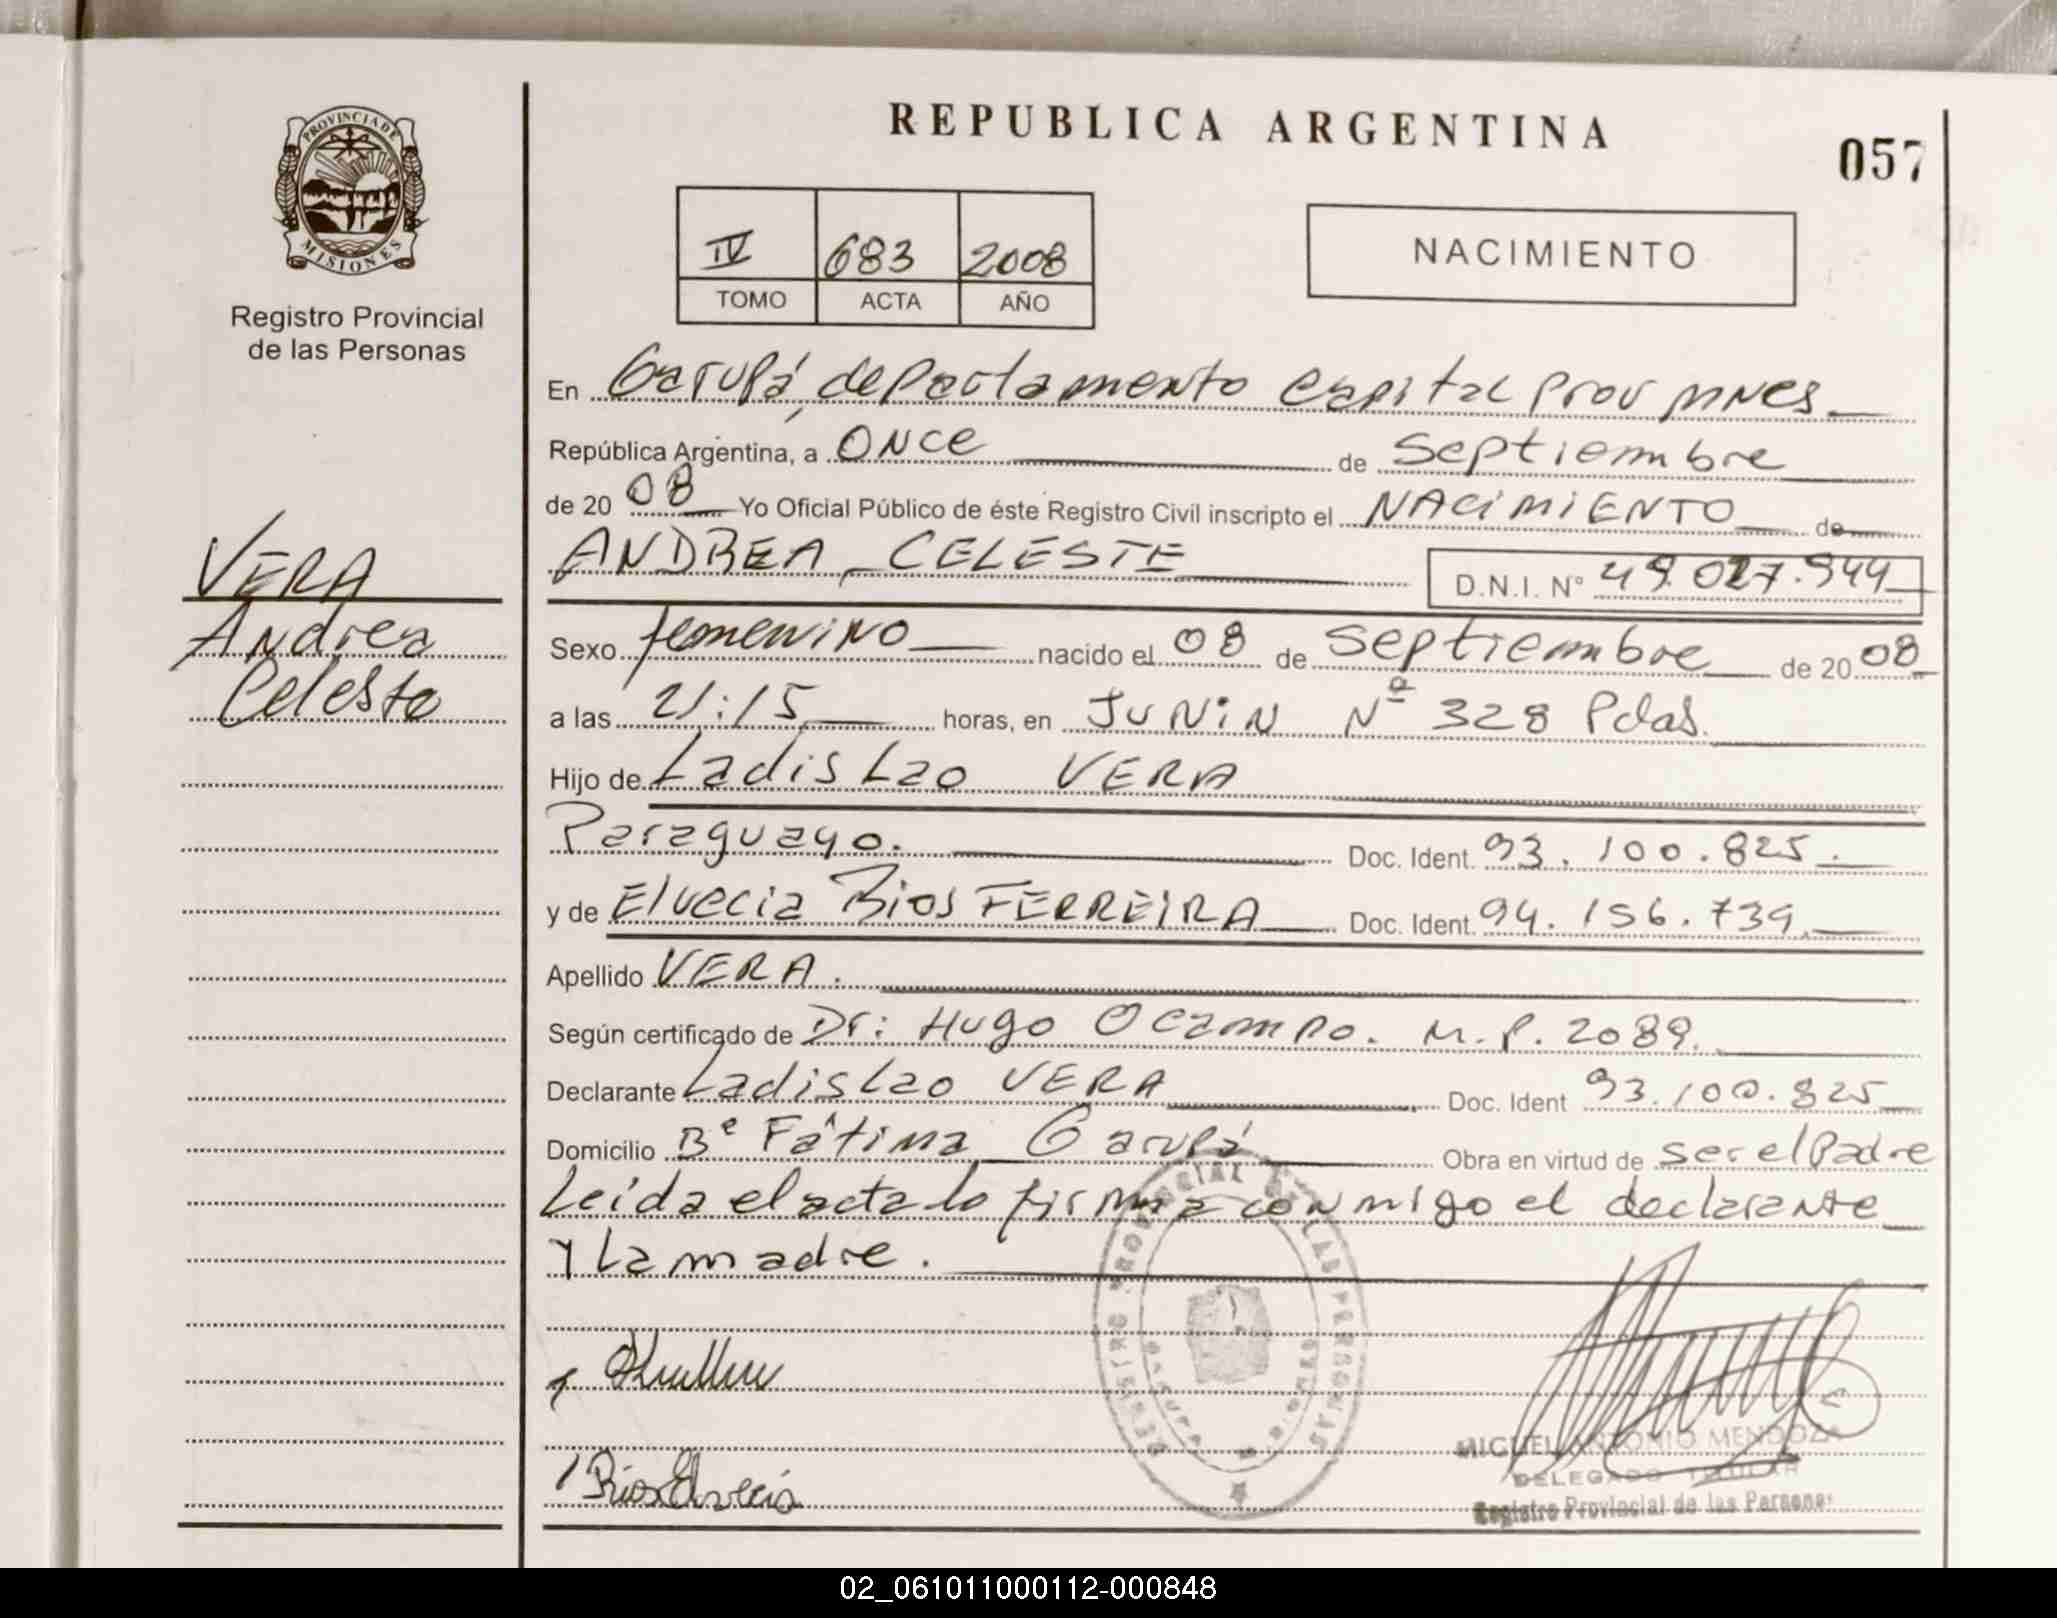 PROVINCIA DE
MISIONES
Registro Provincial
de las Personas
VERA
Andrea
Celeste
REPUBLICA ARGENTINA
057
IV 683 2008
TOMO ACTA AÑO
NACIMIENTO
En Garupá, departamento capital prov mnes
República Argentina, a ONce de septiembre
de 20 08 Yo Oficial Público de éste Registro Civil inscripto el NACIMIENTO de
ANDREA CELESTE D.N.I. Nº 49.027.944
Sexo femenino nacido el 08 de septiembre de 20 08
a las 21:15 horas, en JUNIN Nº 328 Pdas.
Hijo de Ladislao VERA
Paraguayo. Doc. Ident. 93.100.825.
y de Elvecia Rios FERREIRA Doc. Ident. 94.156.739.
Apellido VERA.
Según certificado de Dr: Hugo Ocampo. M.P. 2089.
Declarante Ladislao VERA Doc. Ident 93.100.825
Domicilio Bº Fátima Garupá Obra en virtud de ser el Padre
Leida el acta lo firma conmigo el declarante
y la madre.
REGISTRO PROVINCIAL DE LAS PERSONAS
Rios Elvecia
MIGUEL ANTONIO MENDOZA
DELEGADO TITULAR
Registro Provincial de las Personas
02_061011000112-000848